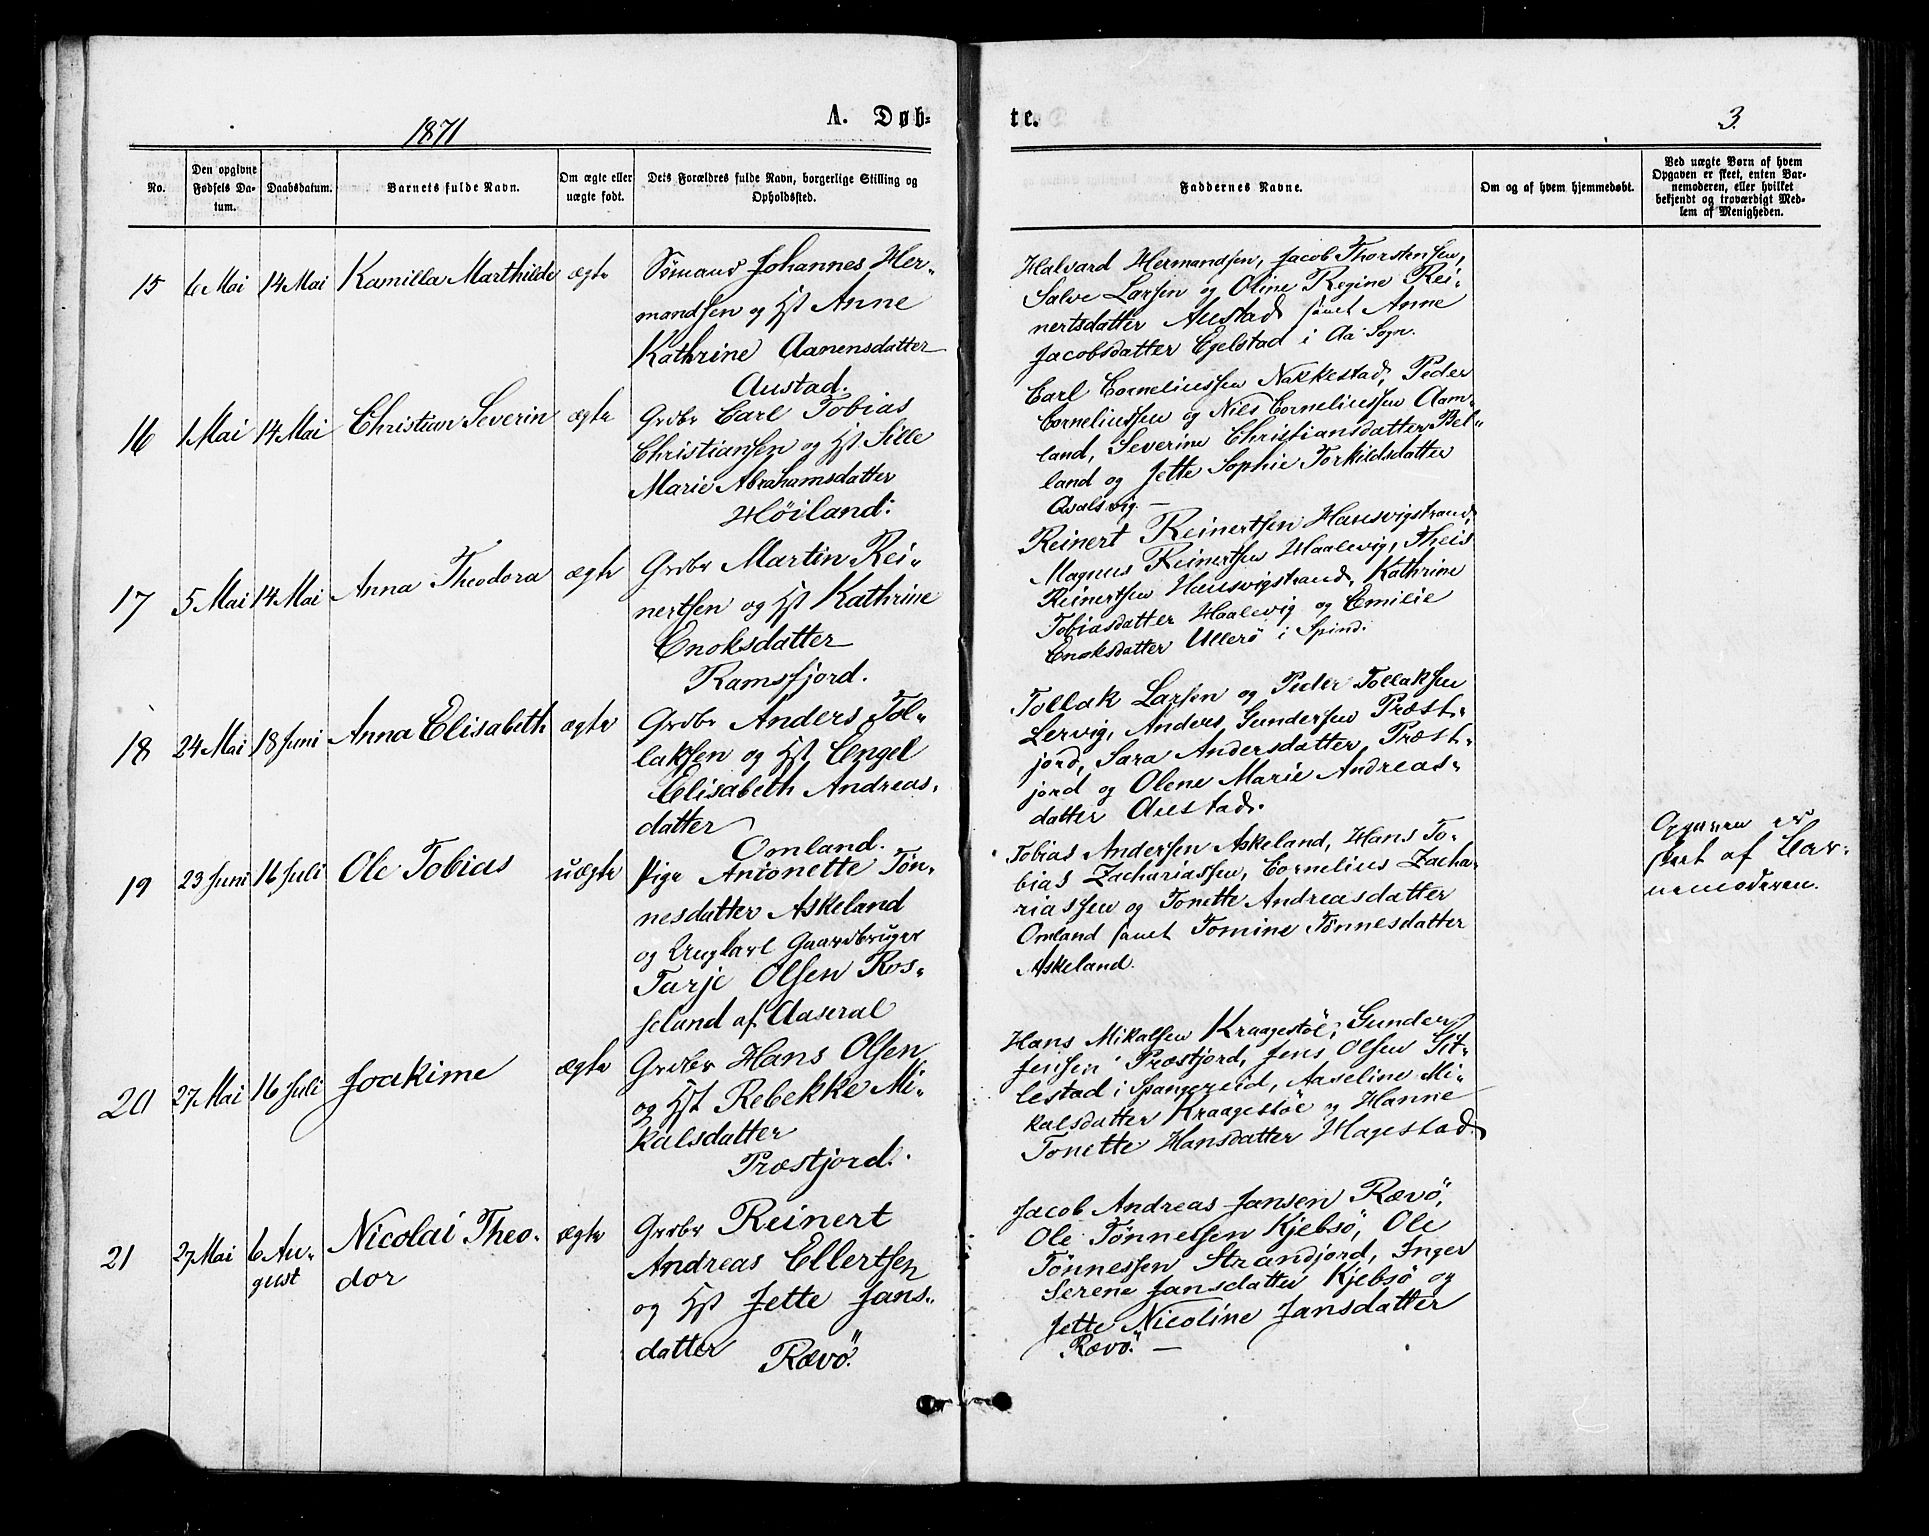 1871
A. Døb-
te.
3.
No.
Den opgivne
Fødsels Da-
tum.
Daabsdatum.
Barnets fulde Navn.
Om ægte eller
uægte født.
Dets Forældres fulde Navn, borgerlige Stilling og
Opholdssted.
Faddernes Navne.
Om og af hvem hjemmedøbt.
Ved uægte Børn af hvem
Opgaven er skeet, enten Bar-
nemoderen, eller hvilket
bekjendt og troværdigt Med-
lem af Menigheden.
15
6 Mai
14 Mai
Kamilla Marthilde
ægte
Sømand Johannes Her-
mandsen og Hst Anne
Kathrine Aanensdatter
Austad.
Halvard Hermandsen, Jacob Thorstensen,
Salve Larsen og Oline Regine Rei-
nertsdatter Austad samt Anne
Jacobsdatter Egelstad i Aa Sogn.
16
1 Mai
14 Mai
Christian Severin
ægte
Grdbr Carl Tobias
Christiansen og Hst Sille
Marie Abrahamsdatter
Høiland.
Carl Corneliussen Nakkestad, Peder
Corneliussen og Nils Corneliussen Aam-
land, Severine Christiansdatter Bel-
land og Jette Sophie Torkildsdatter
Avalsvig. —
17
5 Mai
14 Mai
Anna Theodora
ægte
Grdbr Martin Rei-
nertsen og Hst Kathrine
Enoksdatter
Ramsfjord.
Reinert Reinertsen Hausvigstrand,
Magnus Reinertsen Haalevig, Theis
Reinertsen Hausvigstrand, Kathrine
Tobiasdatter Haalevig og Emilie
Enoksdatter Ullerø i Spind.
18
24 Mai
18 Juni
Anna Elisabeth
ægte
Grdbr Anders Tol-
laksen og Hst Engel
Elisabeth Andreas-
datter
Omland.
Tollak Larsen og Peder Tollaksen
Lervig, Anders Gundersen Præst-
jord, Sara Andersdatter Præst-
jord og Olene Marie Andreas-
datter Austad.
19
23 Juni
16 Juli
Ole Tobias
uægte
Pige Antonette Tøn-
nesdatter Askeland
og Ungkarl Gaardbruger
Tarje Olsen Ros-
seland af Aaseral
Tobias Andersen Askeland, Hans To-
bias Zachariassen, Cornelius Zacha-
riassen og Tonette Andreasdatter
Omland samt Tomine Tønnesdatter
Askeland.
Opgaven er
skeet af Bar-
nemoderen.
20
27 Mai
16 Juli
Joakime
ægte
Grdbr Hans Olsen
og Hst Rebekke Mi-
kalsdatter
Præstjord.
Hans Mikalsen Kraagestøl, Gunder
Jensen Præstjord, Jens Olsen Sit-
lestad i Spangereid, Aaseline Mi-
kalsdatter Kraagestøl og Hanne
Tonette Hansdatter Hagestad.
21
27 Mai
6 Au-
gust
Nicolai Theo-
dor
ægte
Grdbr Reinert
Andreas Ellertsen
og Hst Jette Jans-
datter Rævø.
Jacob Andreas Jansen Rævø,
Ole Tønnessen Kjebsø, Ole
Tønnessen Strandjord, Inger
Serene Jansdatter Kjebsø og
Jette Nicoline Jansdatter
Rævø. —